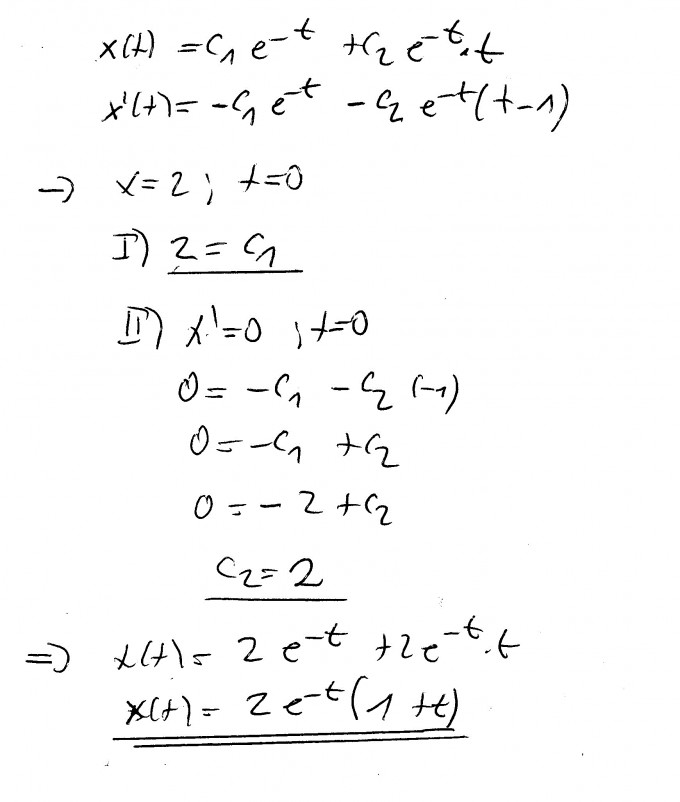 x(t) = C₁ e^-t + C₂ e^-t · t
x'(t) = -C₁ e^-t - C₂ e^-t (t-1)
→ x=2 ; t=0
I) 2 = C₁
II) x'=0 ; t=0
0 = -C₁ - C₂ (-1)
0 = -C₁ + C₂
0 = - 2 + C₂
C₂ = 2
⇒ x(t) = 2 e^-t + 2e^-t · t
x(t) = 2 e^-t (1 + t)